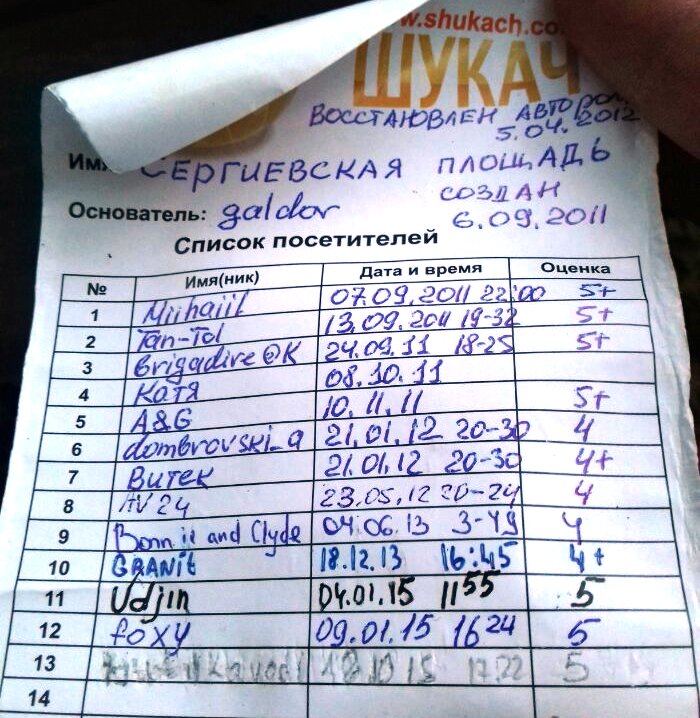 www.shukach.co
ШУКАЧ
ВОССТАНОВЛЕН АВТОРОМ
5.04.2012
Имя СЕРГИЕВСКАЯ ПЛОЩАДЬ
СОЗДАН
Основатель: galdor 6.09.2011
Список посетителей
№ Имя(ник) Дата и время Оценка
1 Miihaiil 07.09.2011 22:00 5+
2 Tan-Tol 13.09.2011 19-32 5+
3 Brigadire@K 24.09.11 18-25 5+
4 Катя 08.10.11
5 A&G 10.11.11 5+
6 dombrovski_a 21.01.12 20-30 4
7 Витек 21.01.12 20-30 4+
8 AV24 23.05.12 20-24 4
9 Bonnie and Clyde 04.06.13 3-49 4
10 GRANit 18.12.13 16:45 4+
11 Udjin 04.01.15 11 55 5
12 foxy 09.01.15 16 24 5
13 5
14